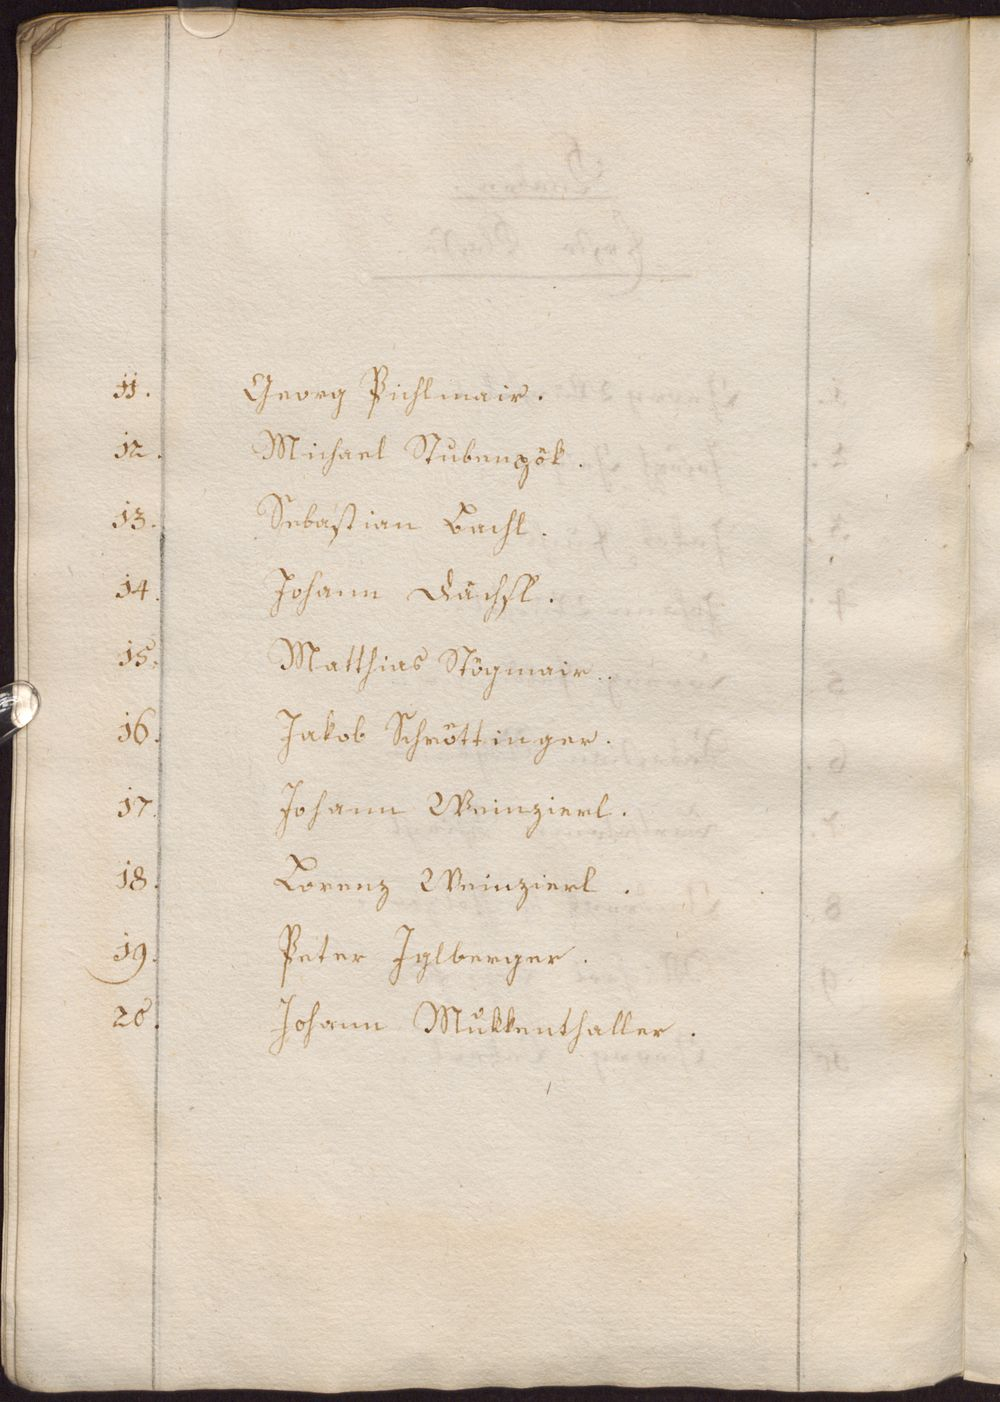 11. Georg Pichlmair.
12. Michael Stubenpök.
13. Sebastian Bachl.
14. Johann
15. Matthias Stögmair.
16. Jakob Schröttinger.
17. Johann Weinzierl.
18. Lorenz Weinzierl.
19. Peter Iglberger.
20. Johann Mukkenthaller.